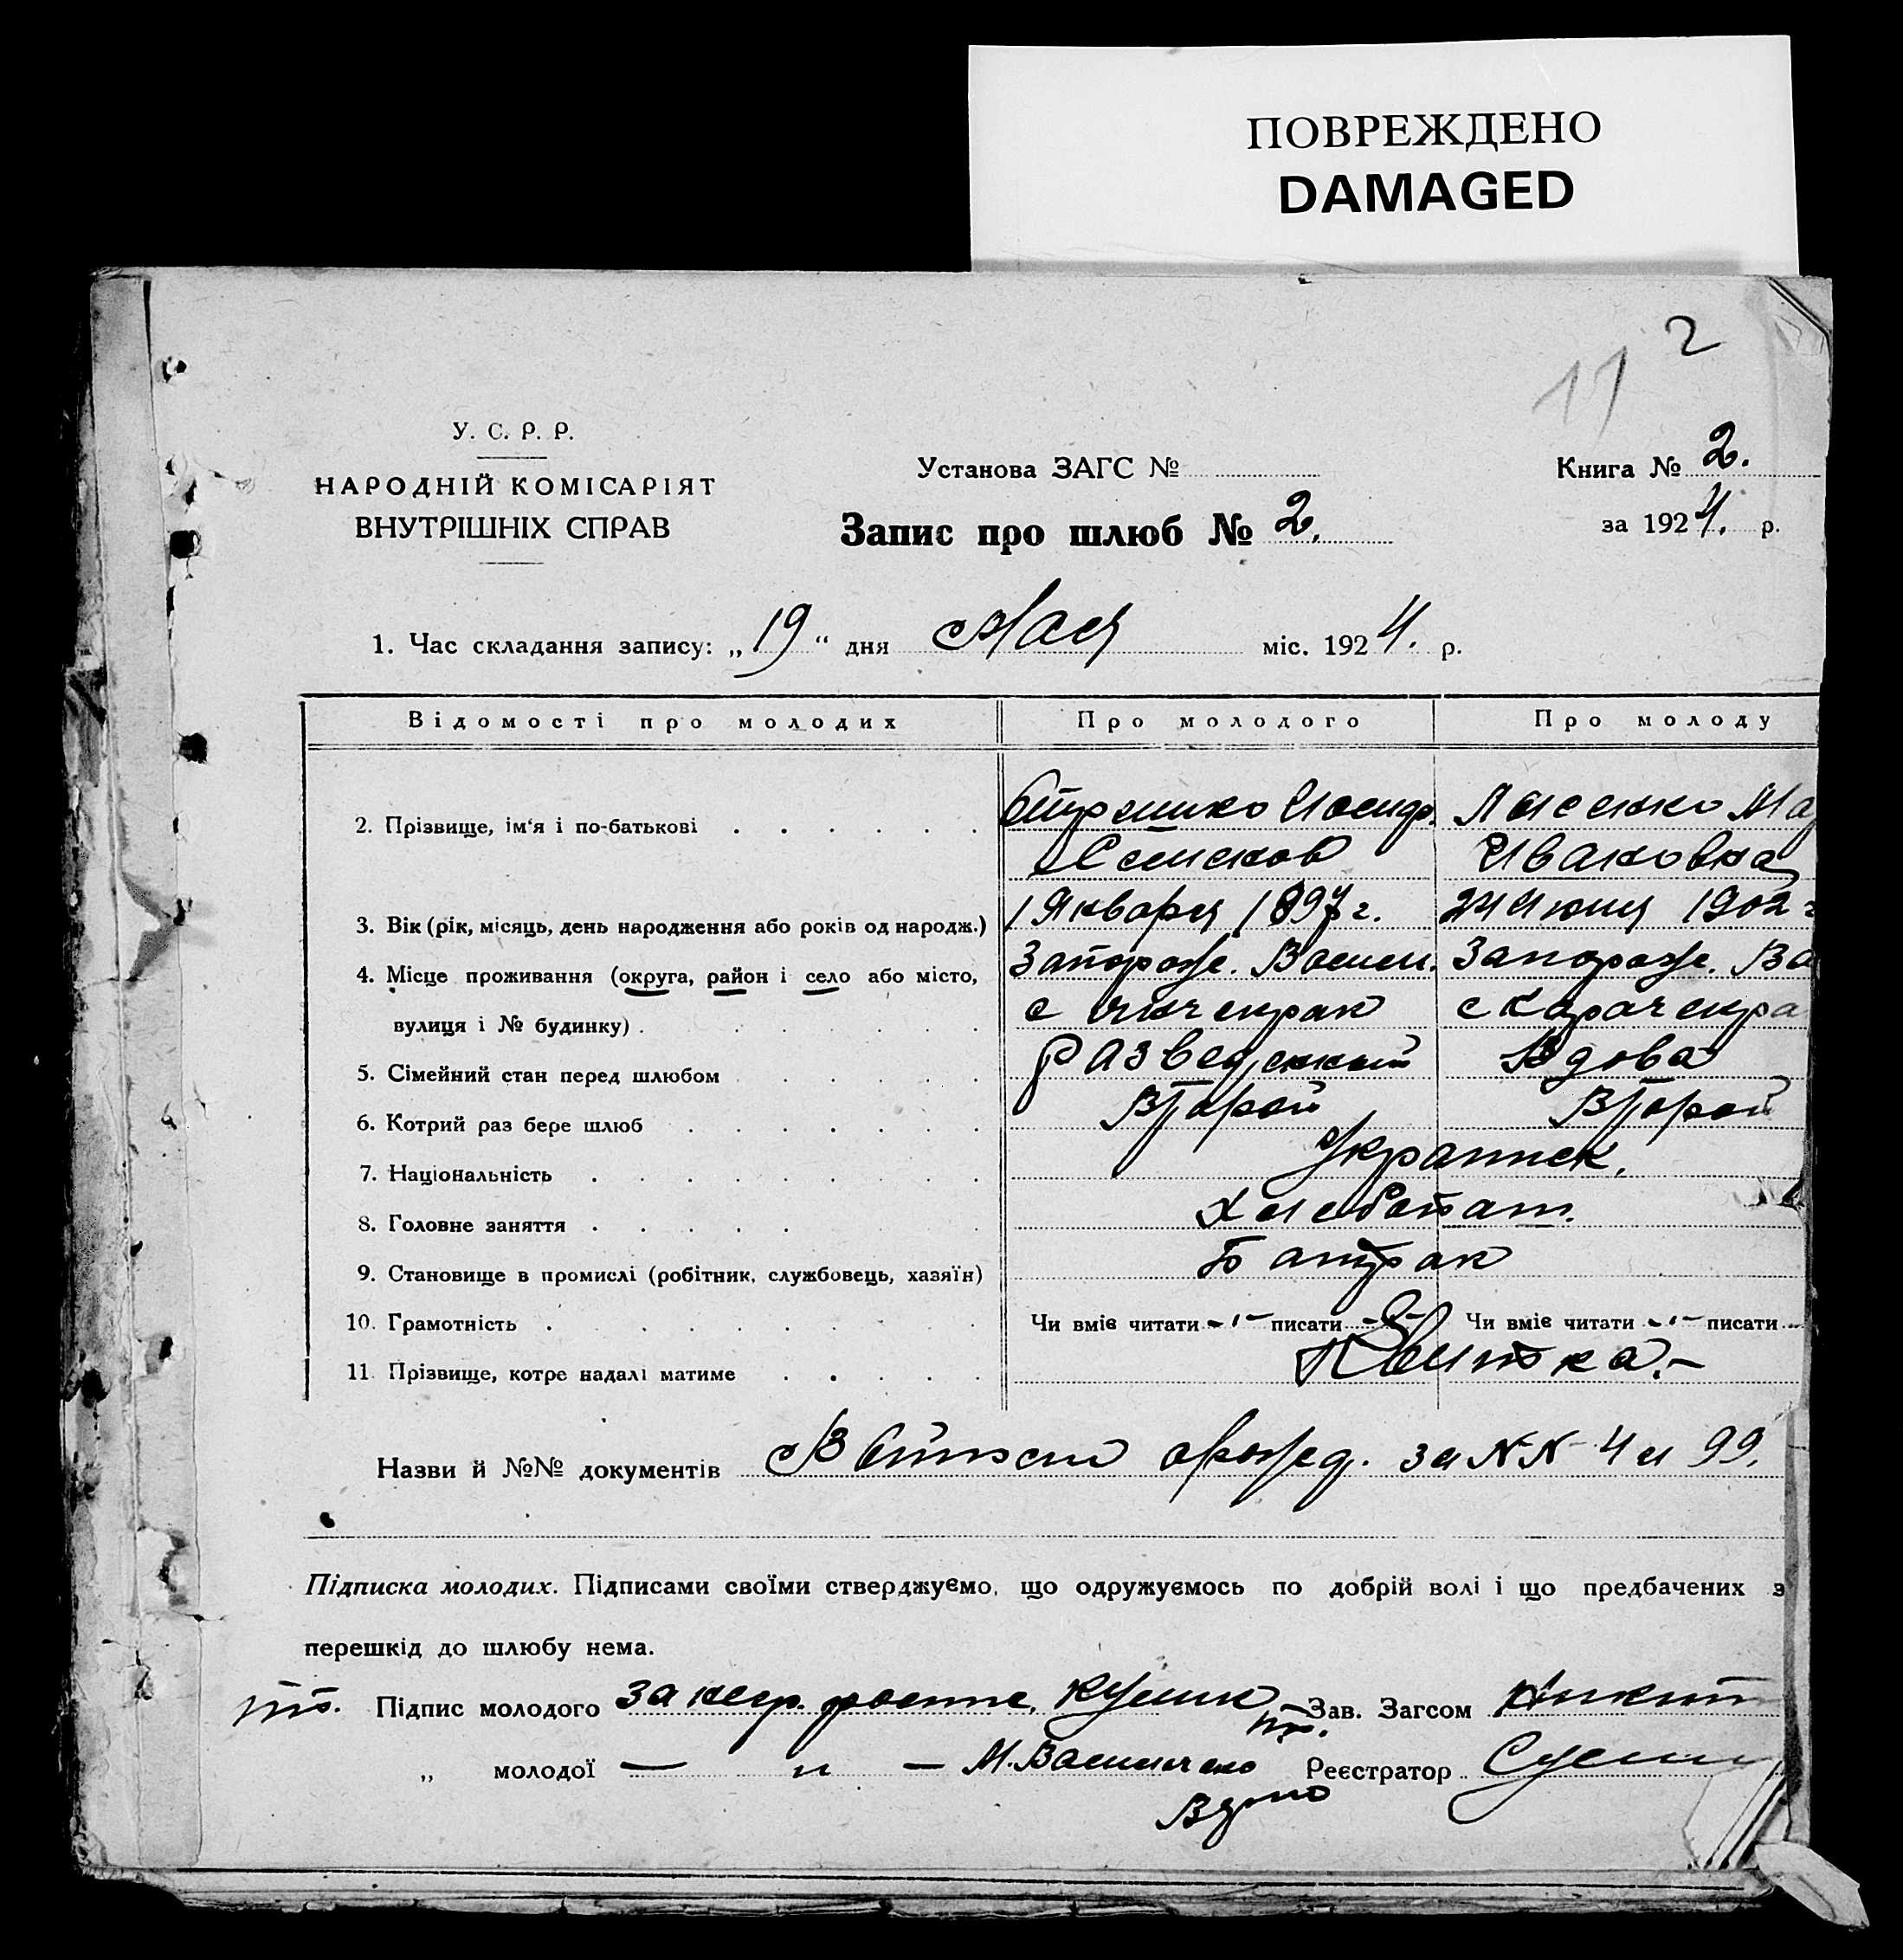 ПОВРЕЖДЕНО
DAMAGED
2
11
У. С. Р. Р.
НАРОДНІЙ КОМІСАРІЯТ
ВНУТРІШНІХ СПРАВ
Установа ЗАГС №
Запис про шлюб № 2.
Книга № 2.
за 1924. р.
1. Час складання запису: „19“ дня мая міс. 1924. р.
Відомості про молодих Про молодого Про молоду
2. Прізвище, ім'я і по-батькові
Ивановна
3. Вік (рік, місяць, день народження або років од народж.) 1 Января 1897 г. 24 Июня 1902 г
4. Місце проживання (округа, район і село або місто, Запорож. Васил. Запорож. Ва
вулиця і № будинку) с с Карачекра
5. Сімейний стан перед шлюбом Разведенный Вдова
6. Котрий раз бере шлюб Второй Второй
7. Національність Украинск.
8. Головне заняття Хлебопаш.
9. Становище в промислі (робітник, службовець, хазяїн) Батрак
10. Грамотність Чи вміє читати писати Чи вміє читати писати
11. Прізвище, котре надалі матиме
Назви й №№ документів рожд. за NN 4 и 99.
Підписка молодих. Підписами своїми стверджуємо, що одружуємось по добрій волі і що предбачених з
перешкід до шлюбу нема.
Підпис молодого за негр. роспис. Зав. Загсом
„ молодої — „ — М. Василенко Реєстратор